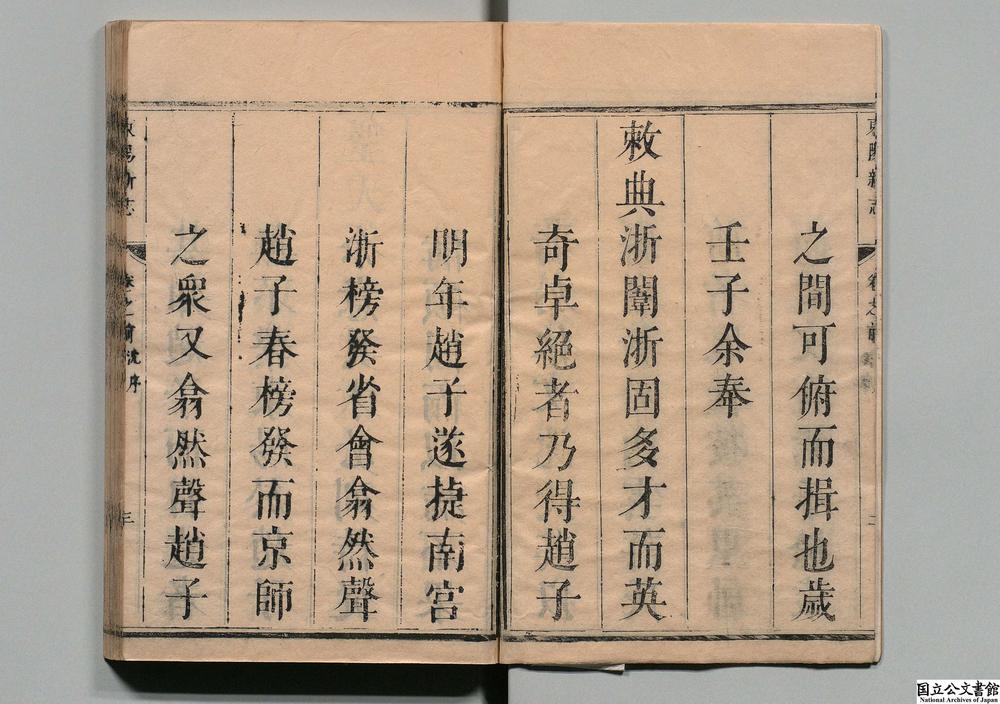 東陽新志
卷之前
之間可俯而揖也歲
壬子余奉
敕典浙闈浙固多才而英
奇卓絕者乃得趙子
明年趙子遂捷南宮
浙榜發省會翕然聲
趙子春榜發而京師
之衆又翕然聲趙子
東陽新志
卷之前
沈序
三
国立公文書館
National Archives of Japan